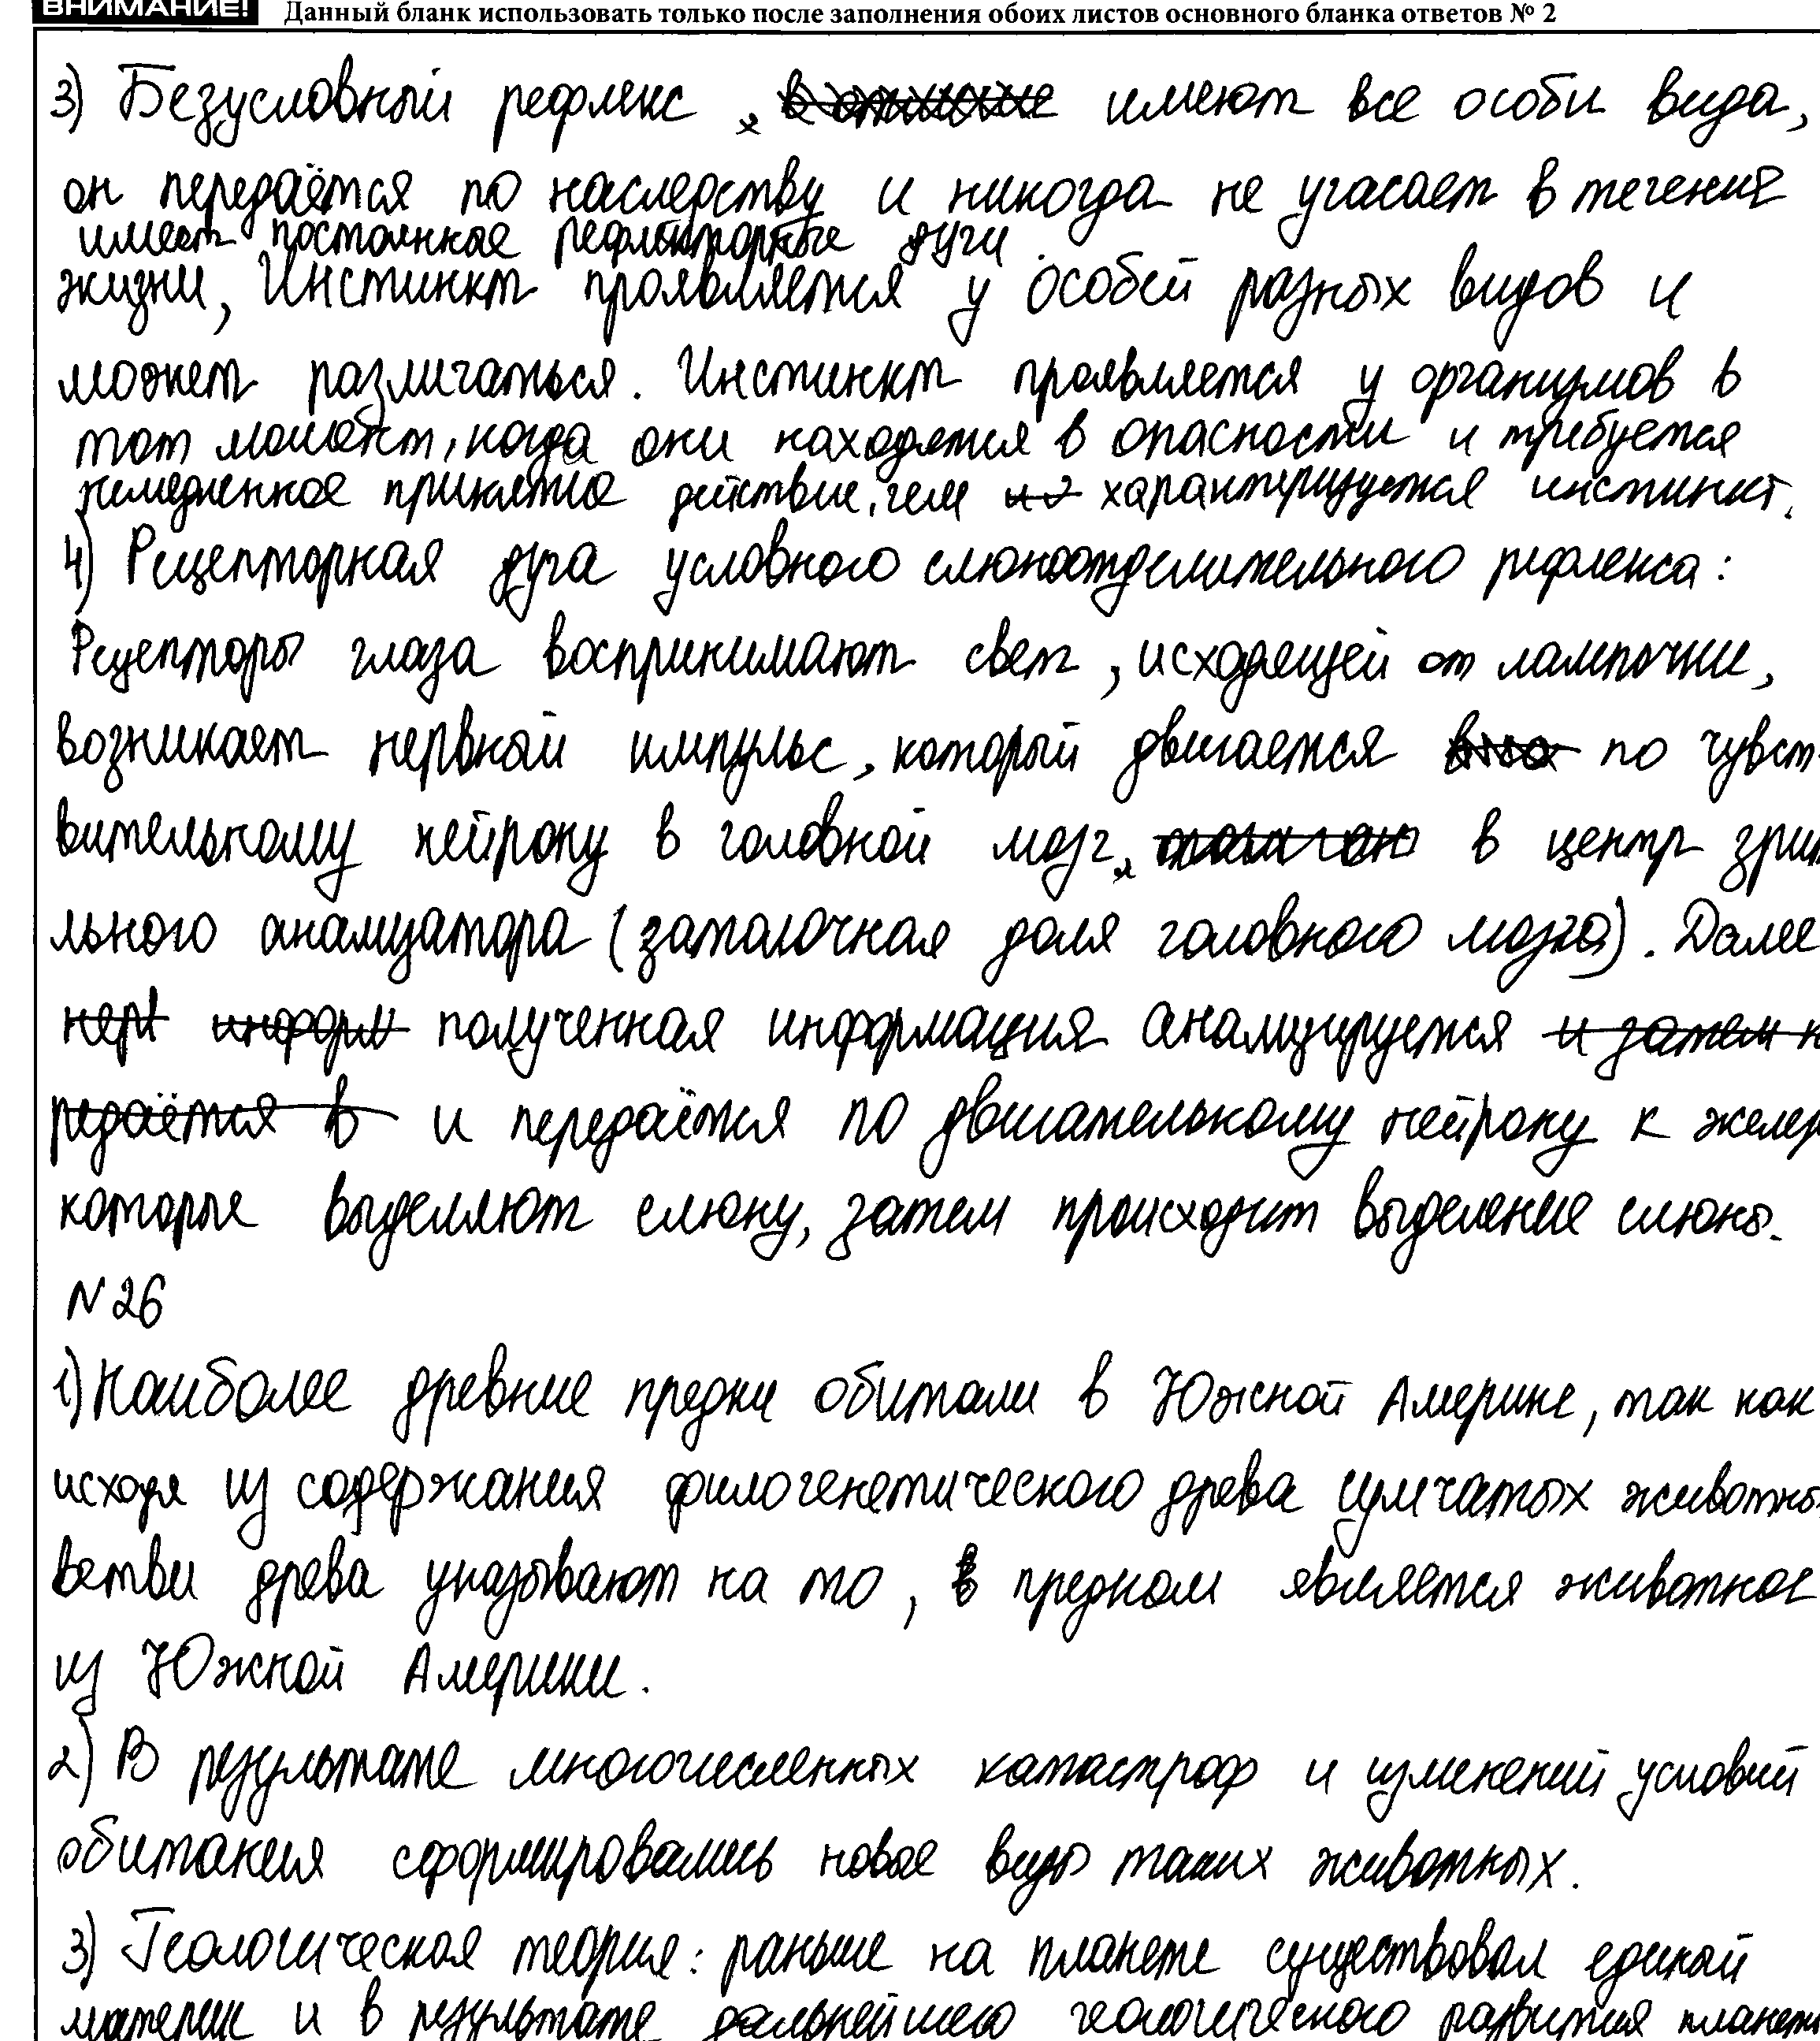 ВНИМАНИЕ! Данный бланк использовать только после заполнения обоих листов основного бланка ответов № 2
3) Безусловный рефлекс, имеют все особи вида,
он передаётся по наследству и никогда не угасает в течений
имеет постоянные рефлекторные дуги.
жизни, Инстинкт проявляется у особей разных видов и
может различаться. Инстинкт проявляется у организмов в
тот момент, когда они находятся в опасности и требуется
немедленное принятие действие, чем характеризуется инстинкт.
4) Рецепторная дуга условного слюноотделительного рефлекса:
Рецепторы глаза воспринимают свет, исходящей от лампочки,
возникает нервный импульс, который двигается по чувст-
вительному нейрону в головной мозг, в центр зрит
льного анализатора (затылочная доля головного мозга). Далее
нерв информ полученная информация анализируется и затем п
редаётся в и передаётся по двигательному нейрону к желез
которые выделяют слюну, затем происходит выделение слюны.
N 26
1) Наиболее древние предки обитали в Южной Америке, так как
исходя из содержания филогенетического древа сумчатых животны
ветви древа указывают на то, в предком является животное
из Южной Америки.
2) В результате многочисленных катастроф и изменений условий
обитания сформировались новые виды таких животных.
3) Геологическая теория: раньше на планете существовал единый
материк и в результате дальнейшего геологического развития планеты